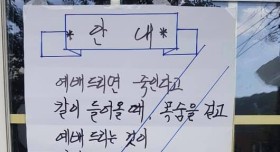 * 안 내 *
예배 드리면 죽인다고
칼이 들어올 때, 목숨을 걸고
예배 드리는 것이